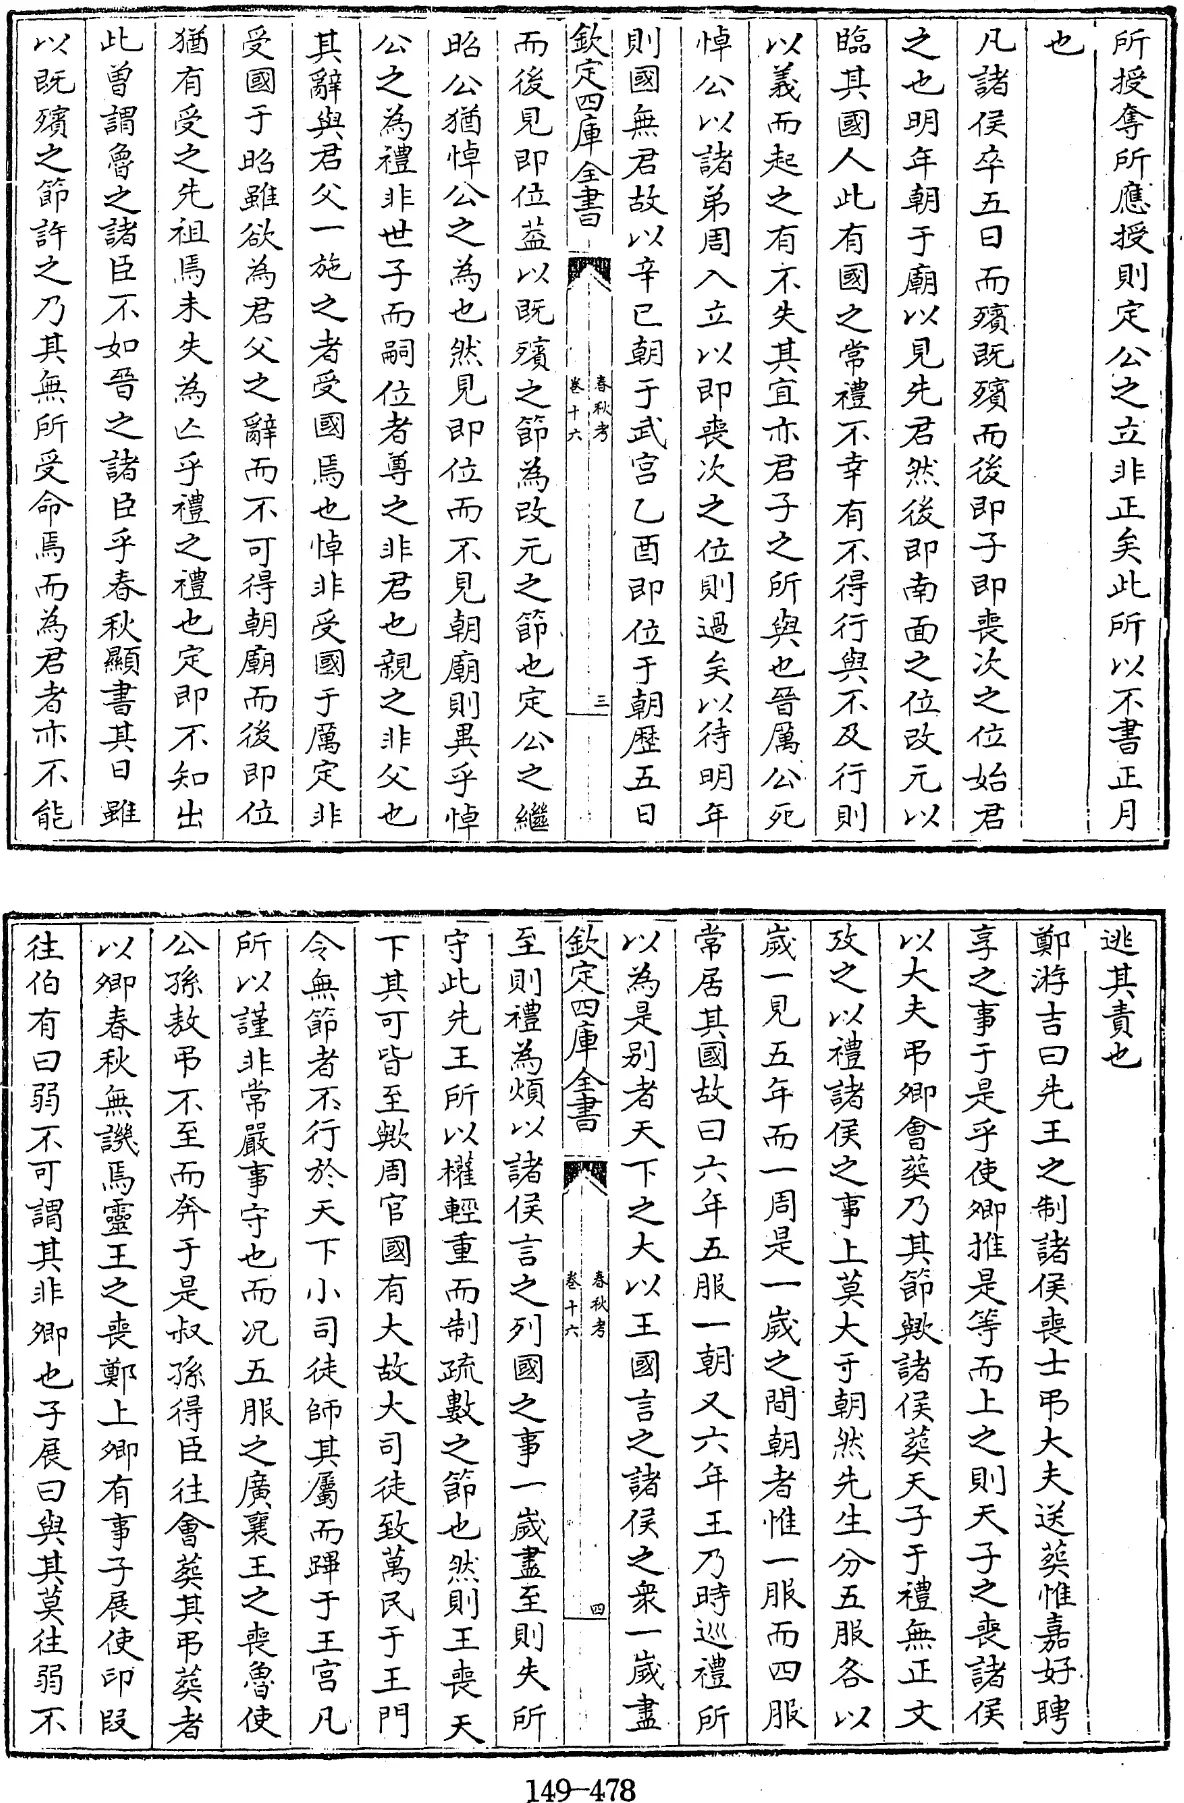 所授奪所應授則定公之立非正矣此所以不書正月
也
凡諸侯卒五日而殯既殯而後即子即喪次之位始君
之也明年朝于廟以見先君然後即南面之位改元以
臨其國人此有國之常禮不幸有不得行與不及行則
以義而起之有不失其宜亦君子之所與也晉厲公死
悼公以諸弟周入立以即喪次之位則過矣以待明年
則國無君故以辛巳朝于武宫乙酉即位于朝歴五日
欽定四庫全書
春秋考
卷十六
三
而後見即位葢以既殯之節為改元之節也定公之繼
昭公猶悼公之為也然見即位而不見朝廟則異乎悼
公之為禮非世子而嗣位者尊之非君也親之非父也
其辭與君父一施之者受國焉也悼非受國于厲定非
受國于昭雖欲為君父之辭而不可得朝廟而後即位
猶有受之先祖焉未失為亾乎禮之禮也定即不知出
此曾謂魯之諸臣不如晉之諸臣乎春秋顯書其日雖
以既殯之節許之乃其無所受命焉而為君者亦不能
逃其責也
鄭游吉曰先王之制諸侯喪士弔大夫送葬惟嘉好聘
享之事于是乎使卿推是等而上之則天子之喪諸侯
以大夫弔卿會葬乃其節歟諸侯葬天子于禮無正文
攷之以禮諸侯之事上莫大于朝然先生分五服各以
歲一見五年而一周是一歲之間朝者惟一服而四服
常居其國故曰六年五服一朝又六年王乃時巡禮所
以為是别者天下之大以王國言之諸侯之衆一歲盡
欽定四庫全書
春秋考
卷十六
四
至則禮為煩以諸侯言之列國之事一歲盡至則失所
守此先王所以權輕重而制疏數之節也然則王喪天
下其可皆至歟周官國有大故大司徒致萬民于王門
令無節者不行於天下小司徒師其屬而蹕于王宫凡
所以謹非常嚴事守也而况五服之廣襄王之喪魯使
公孫敖弔不至而奔于是叔孫得臣往會葬其弔葬者
以卿春秋無譏焉靈王之喪鄭上卿有事子展使印段
往伯有曰弱不可謂其非卿也子展曰與其莫往弱不
149-478